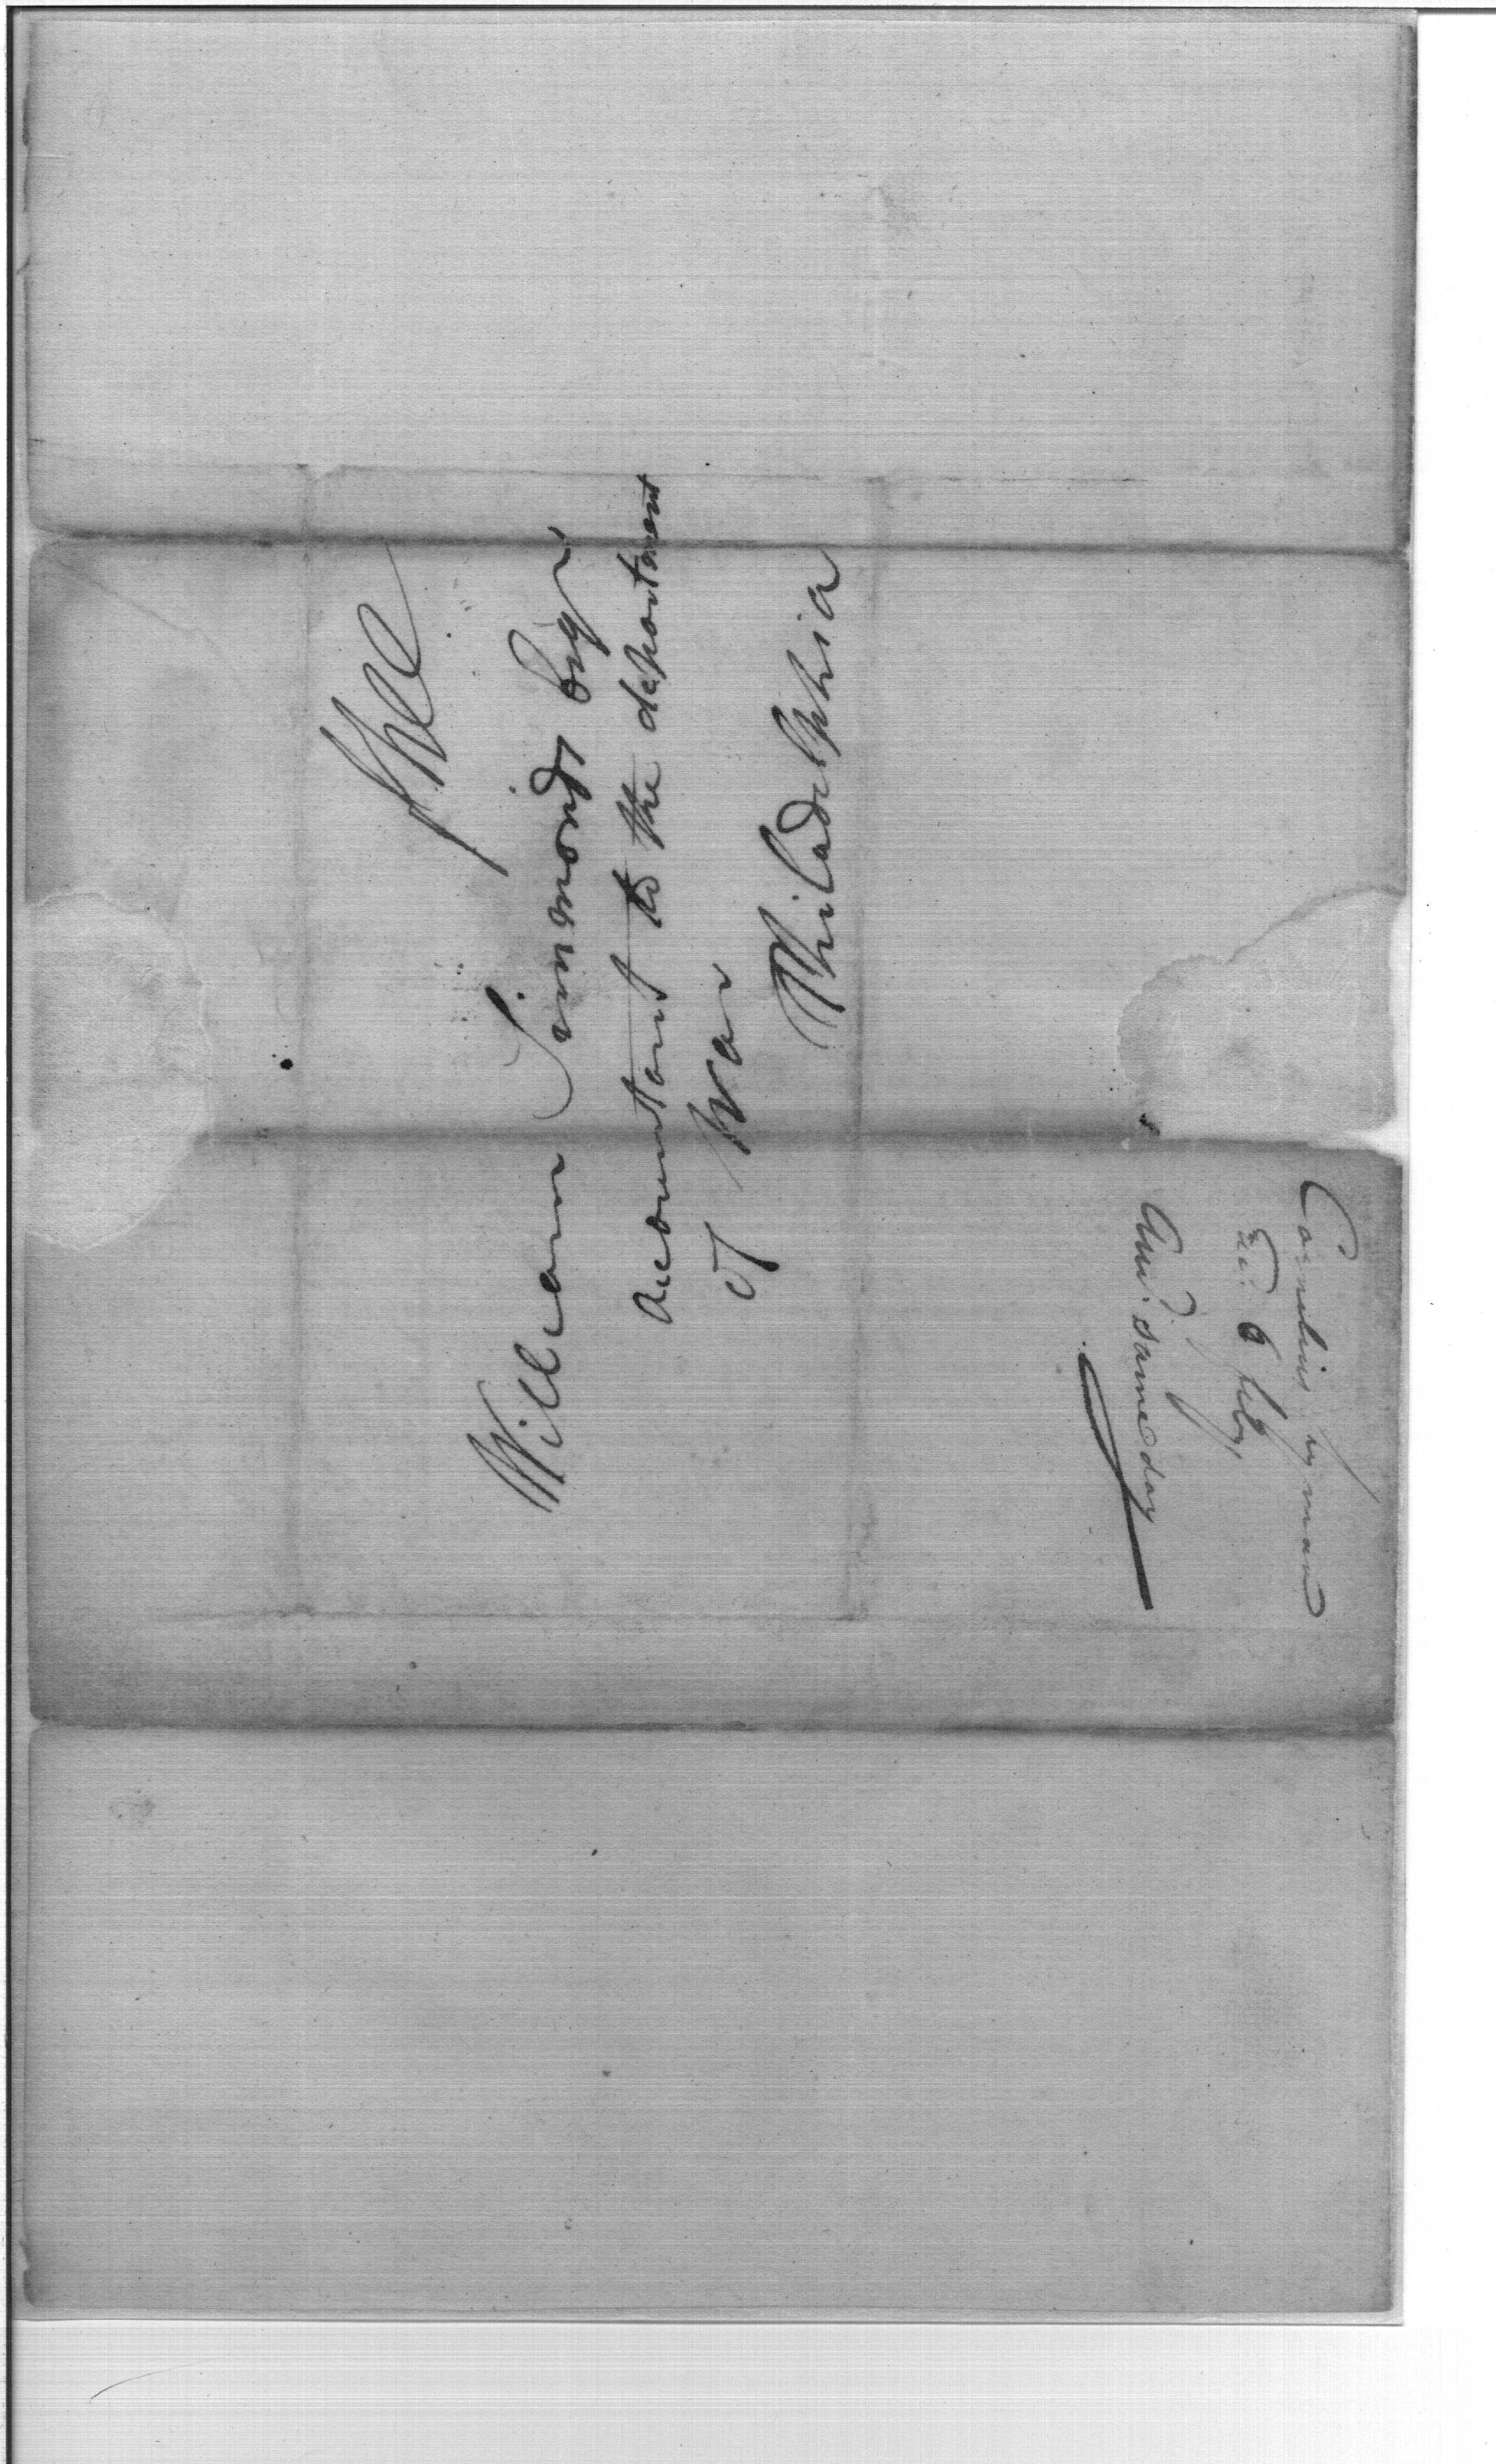 Free
William Simmonds Esqr
Accountant to the department
of War
Philadelphia
Cornelius Lyman
Rec. 6 feby,
Ansd. same day